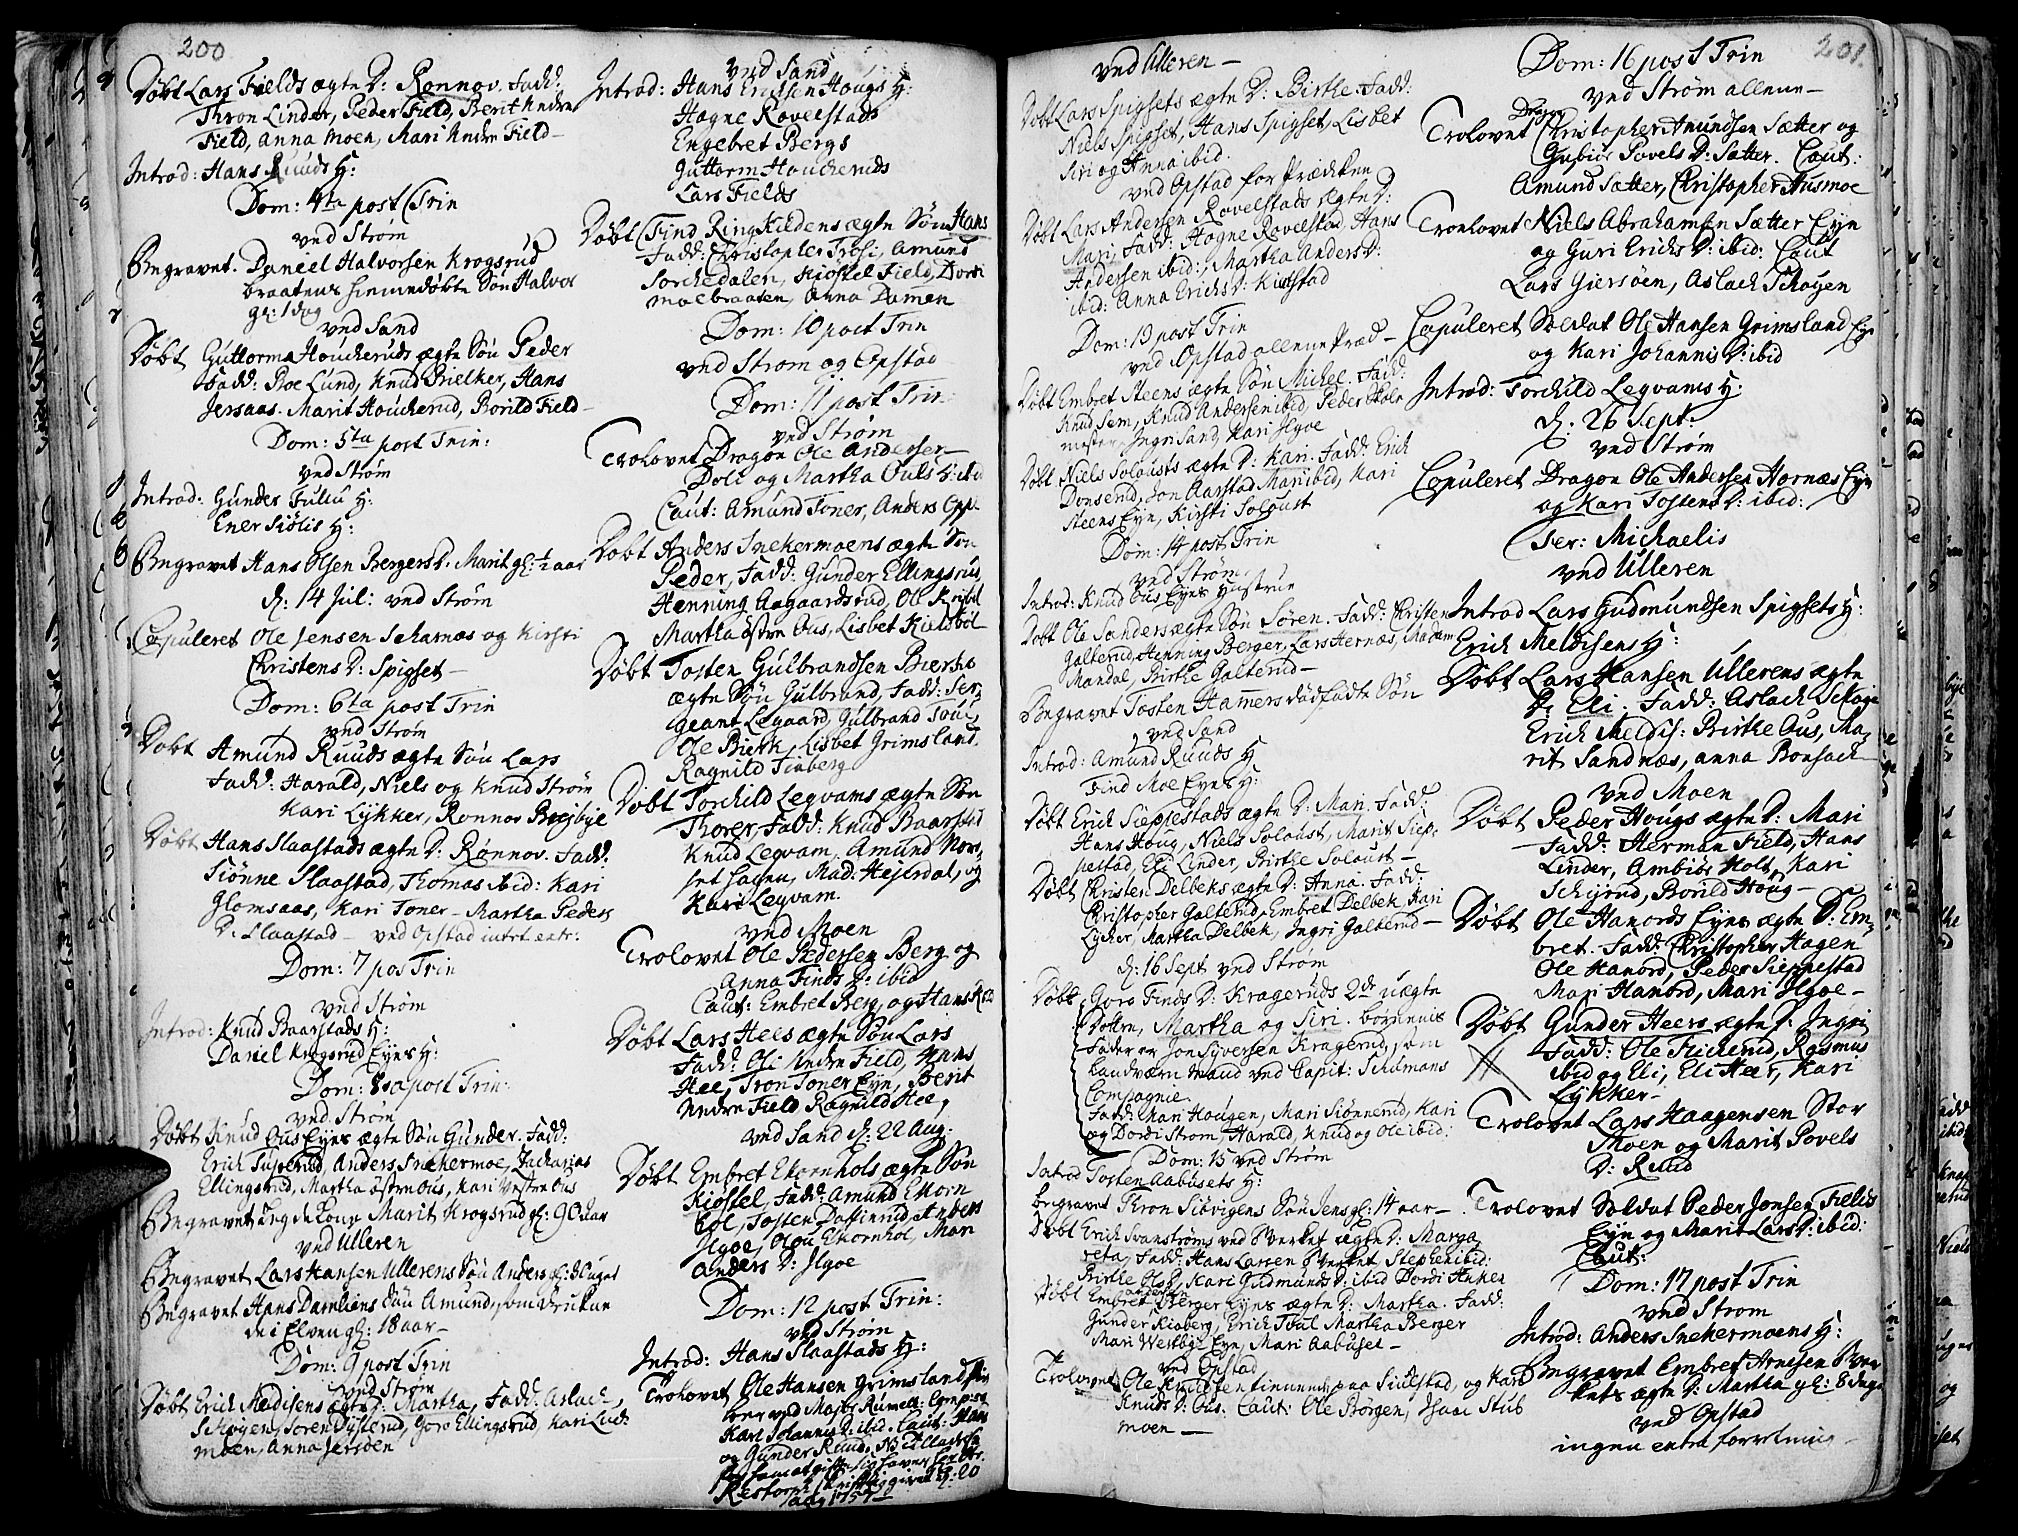 200
Døbt Lars Fields ægte D: Ronnov. Fadd:
Thron Linder, Peder Field, Berit Nedre
Field, Anna Moen, Mari Nedre Field
Introd: Hans Ruuds H:
Dom: 4ta post Trin
ved Strøm
Begravet. Daniel Halvorsen Krogsrud
braatens hiemedøbte Søn Halvor
gl: 1 dag
ved Sand
Døbt Guttorm Houcheruds ægte Søn Peder
Fadd: Roe Lund, Knud Brielker, Hans
Jersaas. Marit Houcherud, Borild Field
Dom: 5ta post Trin:
ved Strøm
Introd: Gunder Fulu H:
Ener Siølis H:
Begravet Hans Olsen Bergers D: Marit gl: ½ aar
d: 14 Jul: ved Strøm
Copuleret Ole Jensen Scharnæs og Kirsti
Christens D: Spigset
Dom: 6ta post Trin
ved Strøm
Døbt Amund Ruuds ægte Søn Lars
Fadd: Harald, Niels og Knud Strøm
Kari Lykker, Ronnov Breibye
Døbt Hans Slaastads ægte D: Rønnov. Fadd:
Siønne Slaastad, Thomas ibid: Kari
Glomsaas, Kari Toner - Martha Peders
D: Slaastad - ved Opstad intet extr:
Dom: 7 pos Trin
ved Strøm
Introd: Knud Baarstads H:
Daniel Krogsrud Eyes H:
Dom: 8va post Trin:
ved Strøm
Døbt Knud Ous Eyes ægte Søn Gunder. Fadd:
Erich Tuperud, Anders Snekermoe, Zacharias
Ellingsrud, Martha Østre Ous, Kari Vestre Ous
Begravet Marit Krogsrud gl: 90 aar
ved Ulleren
Begravet Lars Hansen Ullerens Søn Anders gl: 3 Uger
Begravet Hans Damliens Søn Amund, som drukne
de i Elven gl: 18 aar
Dom: 9 post Trin
ved Strøm
Døbt Erich Meldisens ægte D: Martha, Fadd: Aslach
Schøyen, Søren Dysterud, Goro Ellingsrud, Kari Lied:
moen, Anna Jersøen
ved Sand
Introd: Hans Erichsen Hougs H:
Hogne Rovelstads
Engebret Bergs
Guttorm Houcheruds
Lars Fields
Døbt Find Ring Kildens ægte Søn Hans
Fadd: Christopher Trosi, Amund
Sorchedalen, Kiøstel Field, Dordi
Moebraaten, Anna Damen
Dom: 10 post Trin
ved Strøm og Opstad
Dom: 11 post Trin
ved Strøm
Trolovet Dragon Ole Andersen
Doli og Martha Ouls D: ibid
Caut: Amund Toner, Anders Opp
Døbt Anders Snekermoens ægte Søn
Peder, Fadd: Gunder Ellingsrud
Henning Aagaardsrud, Ole Kiølsbøl
Martha Østre Ous, Lisbet Kiølsbøl
Døbt Tosten Gulbrandsen Bierke
ægte Søn Gulbrand, Fadd: Ser
geant Legaard, Gulbrand Toul,
Ole Bierk, Lisbet Grimsland,
Ragnild Finberg
Døbt Torchild Legvams ægte Søn
Thorer, Fadd: Knud Baarsted
Knud Legvam, Amund Nor
set hagen, Mad: Hesterdal, og
Kari Legvam.
ved Moen
Trolovet Ole Pedersen Berg og
Anna Finds D: ibid
Caut: Embret Berg, og Hans
Døbt Lars Hees ægte Søn Lars
Fadd: Oli Nedre Field, Hans
Hee, Tron Toner Eye, Berit
Nedre Field Ragnild Hee,
ved Sand d: 22 Aug.
Døbt Embret Ekornhols ægte Søn
Kiøstel, Fadd: Amund Ekorn
hol, Tosten Daffinrud, Anders
Ilgoe, Olou Ekornhol, Mari
Anders D: Ilgoe
Dom: 12 post Trin:
ved Strøm
Introd: Hans Slaastads H:
Trolovet Ole Hansen Grimsland
ber ved Major Rumelt: Comp: og
Kari Johannis D: ibid. Caut: Hans
og Gunder Ruud,
for samme at gifte sig haver
skriftlig given d: 20
Aug 1757
ved Ulleren
Døbt Lars Spigsets ægte D: Birthe. Fadd:
Niels Spigset, Hans Spigset, Lisbet
Siri og Anna ibid.
ved Opstad for Prædiken
Døbt Lars Andersen Rovelstads ægte D:
Mari, Fadd: Hogne Rovelstad, Hans
Andersen ibid: Martha Anders D:
ibid: Anna Erichs D: Kiølstad
Dom: 13 post Trin
ved Opstad allene Præd
Døbt Embret Steens ægte Søn Michel. Fadd:
Knud Sem, Knud Andersen ibid, Peder Skole
mester, Ingri Sand, Kari Ilgoe
Døbt Niels Solousts ægte D: Kari. Fadd: Erich
Donserud, Jon Aarstad Mari ibid, Kari
Steens Eye, Kirsti Soloust
Dom: 14 post Trin
ved Strøm
Introd: Knud Ous Eyes Hustrue
Døbt Ole Sanders ægte Søn Søren. Fadd: Christen
Galterud, Henning Berger, Lars Hernæs, Madam
Mandal, Birthe Galterud
Begravet Tosten Hammers dødfødte Søn
ved Sand
Introd: Amund Ruuds H
Find Moe Eyes H:
Døbt Erich Sieppestads ægte D: Mari. Fadd:
Hans Houg, Niels Soloust, Marit Siep
pestad, Eli Linder, Birthe Soloust
Døbt Christen Delbeks ægte D: Anna. Fadd:
Christopher Galterud, Embret Delbek, Kari
Lycker, Martha Delbek, Ingri Galterud
d: 16 Sept ved Strøm
Døbt Goro Finds D: Krageruds 2de uægte
Døttre, Martha og Siri. børnenes
fader er Jon Syversen Kragerud, som
Landværn Mand ved Capit: Schumans
Compagnie.
Fadd: Mari Hougen, Mari Siønnerud, Kari
og Dordi Strøm, Harald, Knud og Ole ibid:
Dom: 15 ved Strøm
Introd Tosten Aabusets H:
begravet Thron Siøvigens Søn Jens gl: 14 aar
Døbt Erich Svanstrøms ved Værket ægte D: Marga
reta, Fadd: Hans Larsen Værket, Stephen ibid:
Birthe Ols D, Kari Gudmunds D: ibid Dordi Anker
Døbt Embret Berger Eyes ægte D: Martha. Fadd:
Gunder Kioberg, Erich Toul Martha Berger
Mari Westbye Eye, Mari Aabuset
ved Opstad
Trolovet Ole Knudsen tienende paa Sillestad, og Kari
Knuds D: Ous: Caut: Ole Borgen, Isaac Stub
moen
201.
Dom: 16 post Trin
ved Strøm allene
Dragon
Trolovet Christopher Amundsen Sætter og
Gubiør Povels D: Sætter. Caut:
Amund Sætter, Christopher Husmoe
Trolovet Niels Abrahamsen Sætter Eye
og Guri Erichs D: ibid: Caut
Lars Giersøen, Aslach Schøyen
Copuleret Soldat Ole Hansen Grimsland Eye
og Kari Johannis D: ibid
Introd: Torchild Legvams H:
d: 26 Sept:
ved Strøm
Copuleret Dragon Ole Andersen Hornæs Eye
og Kari Tostens D: ibid:
Fer: Michaelis
ved Ulleren
Introd Lars Gudmundsen Spigsets H:
Erich Meldisens H:
Døbt Lars Hansen Ullerens ægte
D: Eli. Fadd: Aslach Schøye
Erich Meldis: Birthe Ous, Ma
rit Sandnæs, Anna Bonsach
ved Moen
Døbt Peder Hougs ægte D: Mari
Fadd: Herman Field, Hans
Linder, Ambiør Holt, Kari
Schjrud, Borild Houg
Døbt Ole Hanords Eyes ægte S: Em
bret. Fadd: Christopher Hagen
Ole Hanord, Peder Sieppestad
Mari Hanord, Mari Ilgoe
Døbt Gunder Heers ægte D: Ingri
Fadd: Ole Flicherud, Rasmus
ibid og Eli, Eli Heer, Kari
Lykker
Trolovet Lars Haagensen Stor
Moen og Marit Povels
D: Ruud
Trolovet Soldat Peder Jonsen Fields
Eye og Marit Lars D: ibid:
Caut:
Dom: 17 post Trin
ved Strøm
Introd: Anders Snekermoens H:
Begravet Embret Arnesen Vær
kets ægte D: Martha gl: 8 dage
ved Opstad
ingen extra forretning